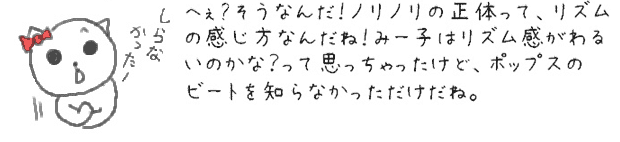 しらな
かった!
へぇ?そうなんだ!ノリノリの正体って、リズム
の感じ方なんだね!みー子はリズム感がわる
いのかな?って思っちゃったけど、ポップスの
ビートを知らなかっただけだね。